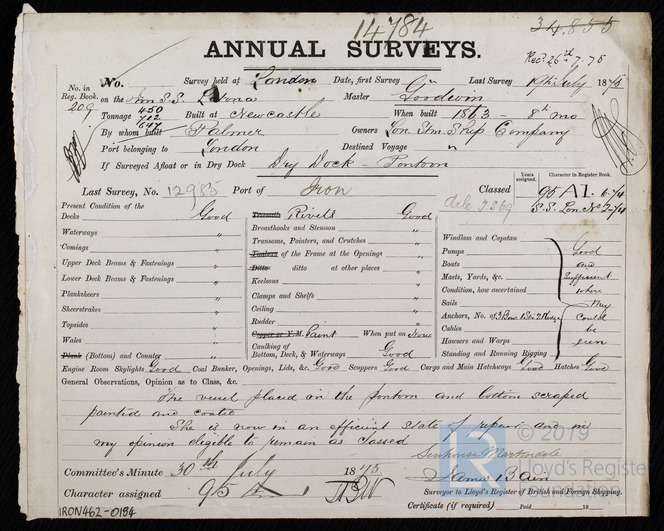 14784
34.855
ANNUAL SURVEYS.
Rec? 26th 7. 75
No. in Reg. Book.
209
No. Survey held at London Date, first Survey Last Survey 19th July 1875
on the Iron S.S. Latona Master Goodwin
Tonnage 450 712 647 Built at Newcastle When built 1863 - 8th mo
By whom built Palmer Owners Lon Stm Ship Company
Port belonging to London Destined Voyage "
If Surveyed Afloat or in Dry Dock Dry Dock - Pontoon
Years assigned. Character in Register Book.
Last Survey, No. 12985 Port of Iron Classed 95 A1. 6-74
S.S. Lon. No 2-74
Present Condition of the
Decks Good
Waterways "
Comings "
Upper Deck Beams & Fastenings "
Lower Deck Beams & Fastenings "
Planksheers "
Sheerstrakes "
Topsides "
Wales "
Plank (Bottom) and Counter "
Treenails Rivets Good
Breasthooks and Stemson "
Transoms, Pointers, and Crutches "
Timbers of the Frame at the Openings "
Ditto ditto at other places "
Keelsons "
Clamps and Shelfs "
Ceiling "
Rudder "
Copper or Y.M. Paint When put on
Caulking of Bottom, Deck, & Waterways Good
Windlass and Capstan
Pumps Good
Boats and
Masts, Yards, &c. Sufficient
Condition, how ascertained where
Sails they
Anchors, No. of could
Cables be
Hawsers and Warps seen
Standing and Running Rigging
Engine Room Skylights Good Coal Bunker, Openings, Lids, &c. Good Scuppers Good Cargo and Main Hatchways Good Hatches Good
General Observations, Opinion as to Class, &c.
The vessel placed in the pontoon and bottom scraped
painted and coated
She is now in an efficient state of repair and in
my opinion eligible to remain as classed
Senhouse Martindale
Committee's Minute 30th July 1875
James Bain
Character assigned 95 A 1
Surveyor to Lloyd's Register of British and Foreign Shipping.
Certificate (if required) Paid 18
IRON462-0184
© 2019
Lloyd's Register
Foundation